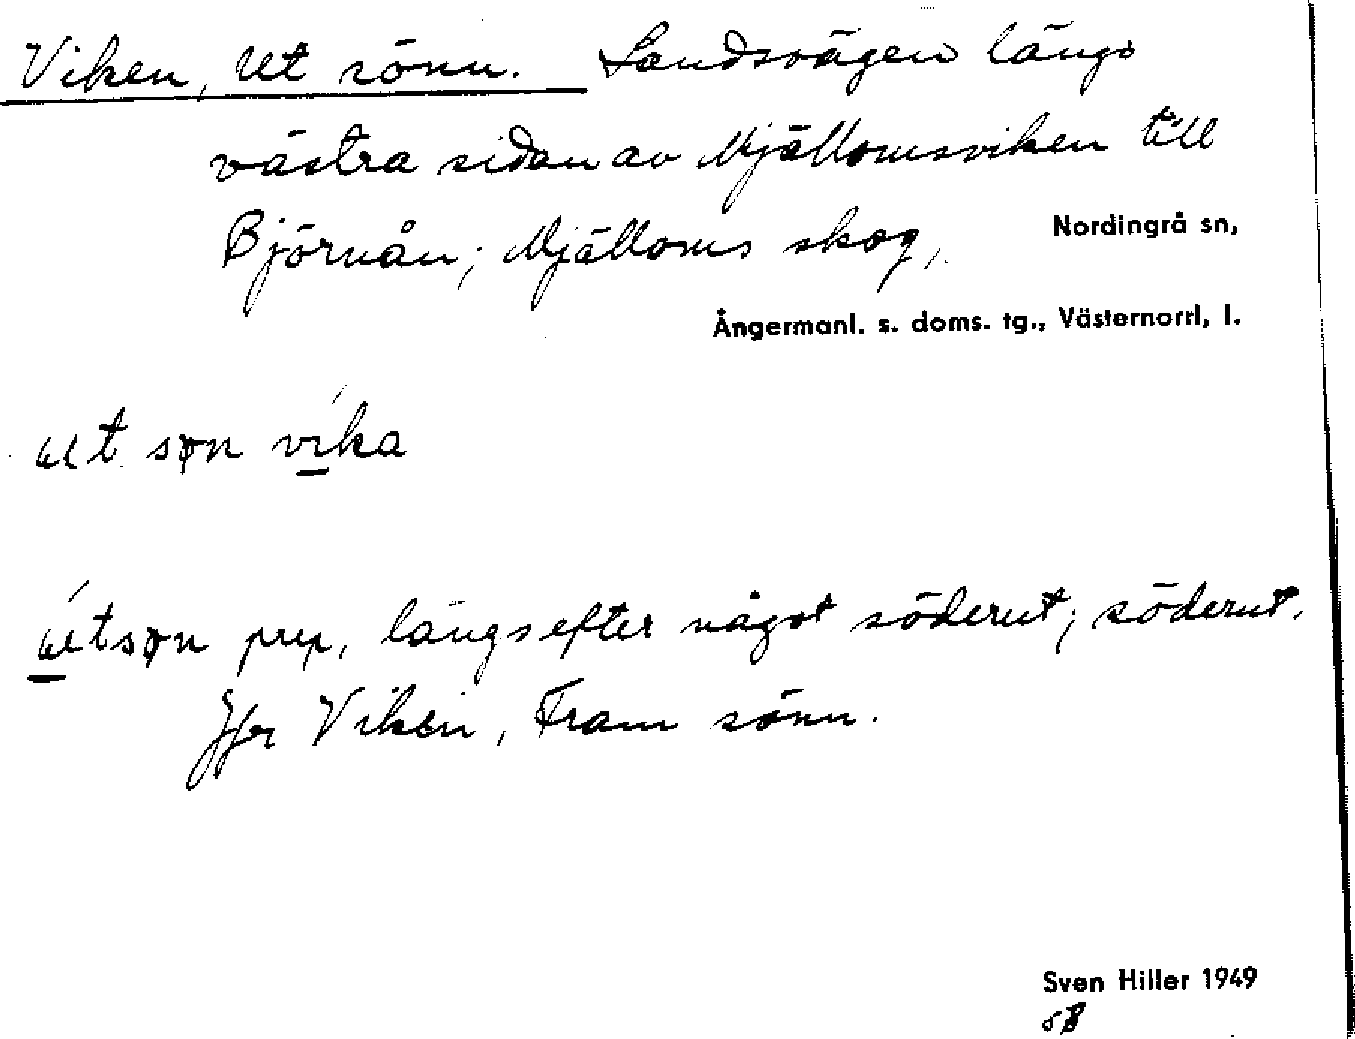 Viken, Ut sönn. Landsvägen längs
västra sidan av Mjällomsviken till
Björnån; Mjälloms skog, Nordingrå sn,
Ångermanl. s. doms. tg., Västernorrl, l.
ut søn vika
utsøn prep, längs efter något söderut; söderut.
Jfr Viken, Fram sönn.
Sven Hiller 1949